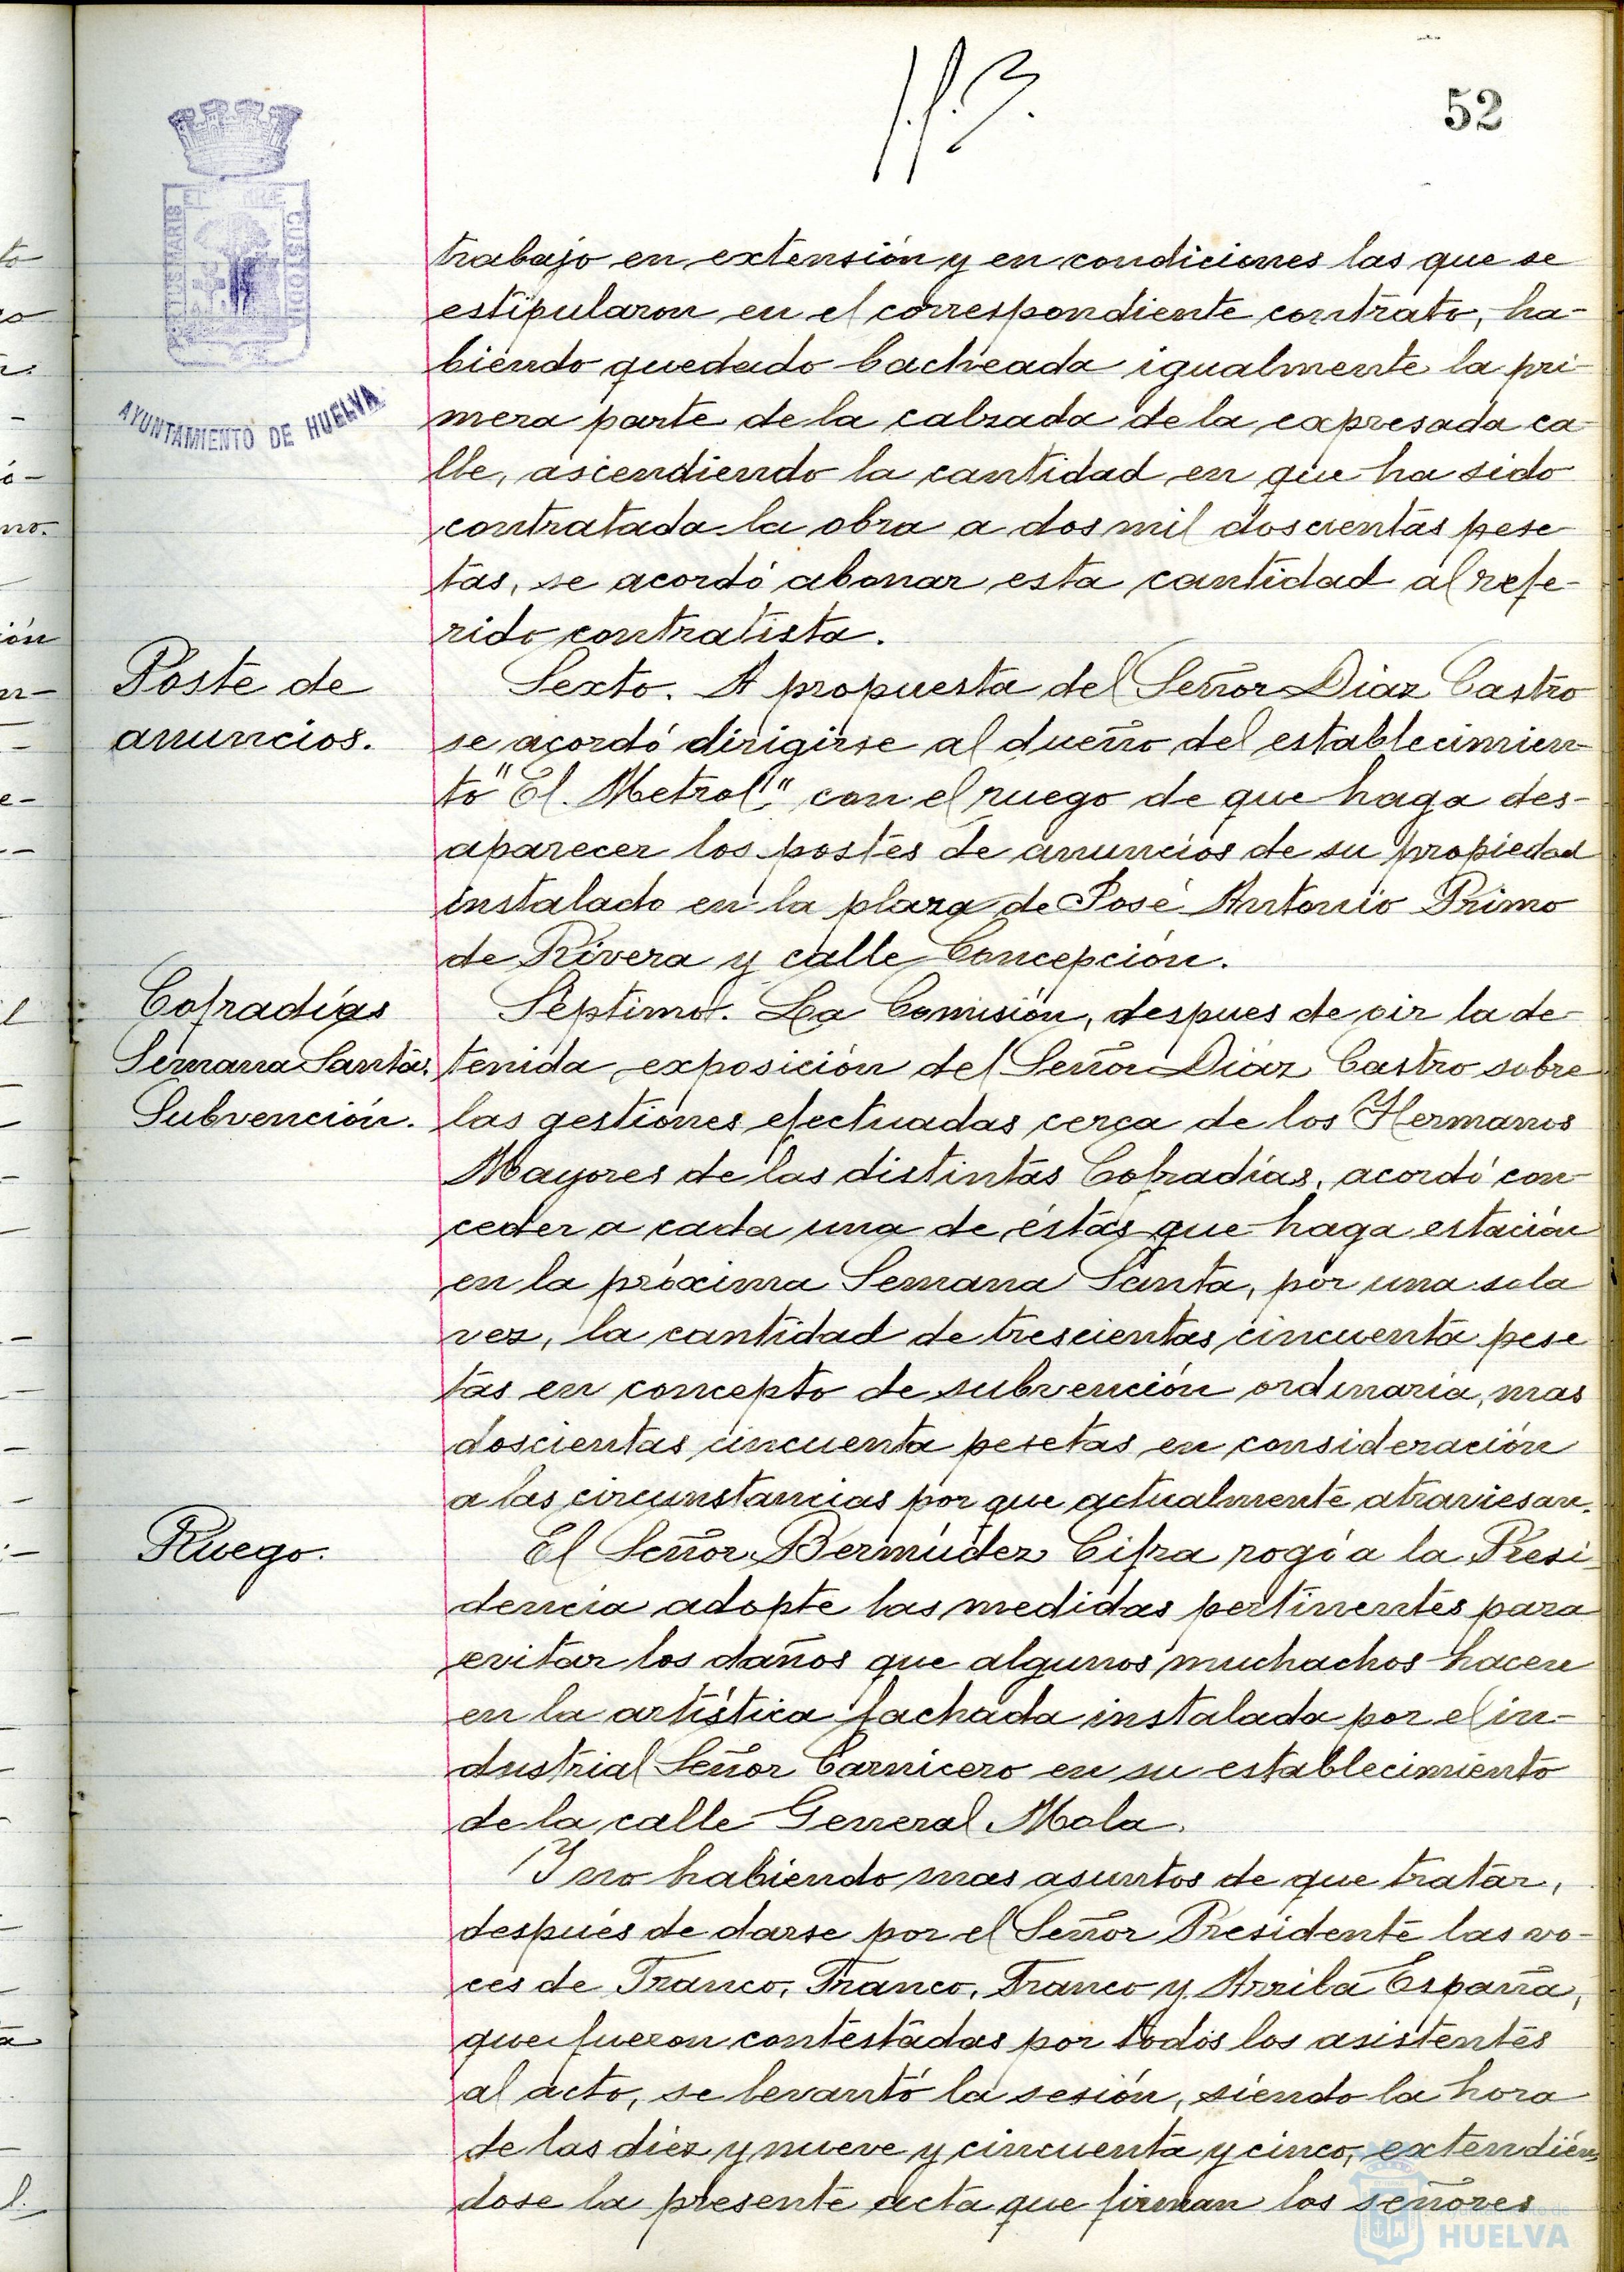 52
AYUNTAMIENTO DE HUELVA
trabajo en extensión y en condiciones las que se
estipularon en el correspondiente contrato, ha-
biendo quedado bacheada igualmente la pri-
mera parte de la calzada de la expresada ca
lle, ascendiendo la cantidad en que ha sido
contratada la obra a dos mil doscientas pese
tas, se acordó abonar esta cantidad al refe-
rido contratista.
Poste de
anuncios.
Sexto. A propuesta del Señor Diaz Castro
se acordó dirigirse al dueño del establecimien-
to "El Metrol" con el ruego de que haga des-
aparecer los postes de anuncios de su propiedad
instalado en la plaza de José Antonio Primo
de Rivera y calle Concepción.
Cofradías
Semana Santa.
Subvención.
Septimo. La Comisión, despues de oir la de-
tenida exposición del Señor Diaz Castro sobre
las gestiones efectuadas cerca de los Hermanos
Mayores de las distintas Cofradías, acordó con-
ceder a cada una de éstas que haga estación
en la próxima Semana Santa, por una sola
vez, la cantidad de trescientas cincuenta pese
tas en concepto de subvención ordinaria, mas
doscientas cincuenta pesetas en consideración
a las circunstancias por que actualmente atraviesan.
Ruego.
El Señor Bermúdez Cifra rogó a la Presi
dencia adopte las medidas pertinentes para
evitar los daños que algunos muchachos hacen
en la artística fachada instalada por el in-
dustrial Señor Carnicero en su establecimiento
de la calle General Mola.
Y no habiendo mas asuntos de que tratar,
después de darse por el Señor Presidente las vo-
ces de Franco, Franco, Franco y Arriba España,
que fueron contestadas por todos los asistentes
al acto, se levantó la sesión, siendo la hora
de las diez y nueve y cincuenta y cinco, extendién
dose la presente acta que firman los señores
Ayuntamiento de
HUELVA